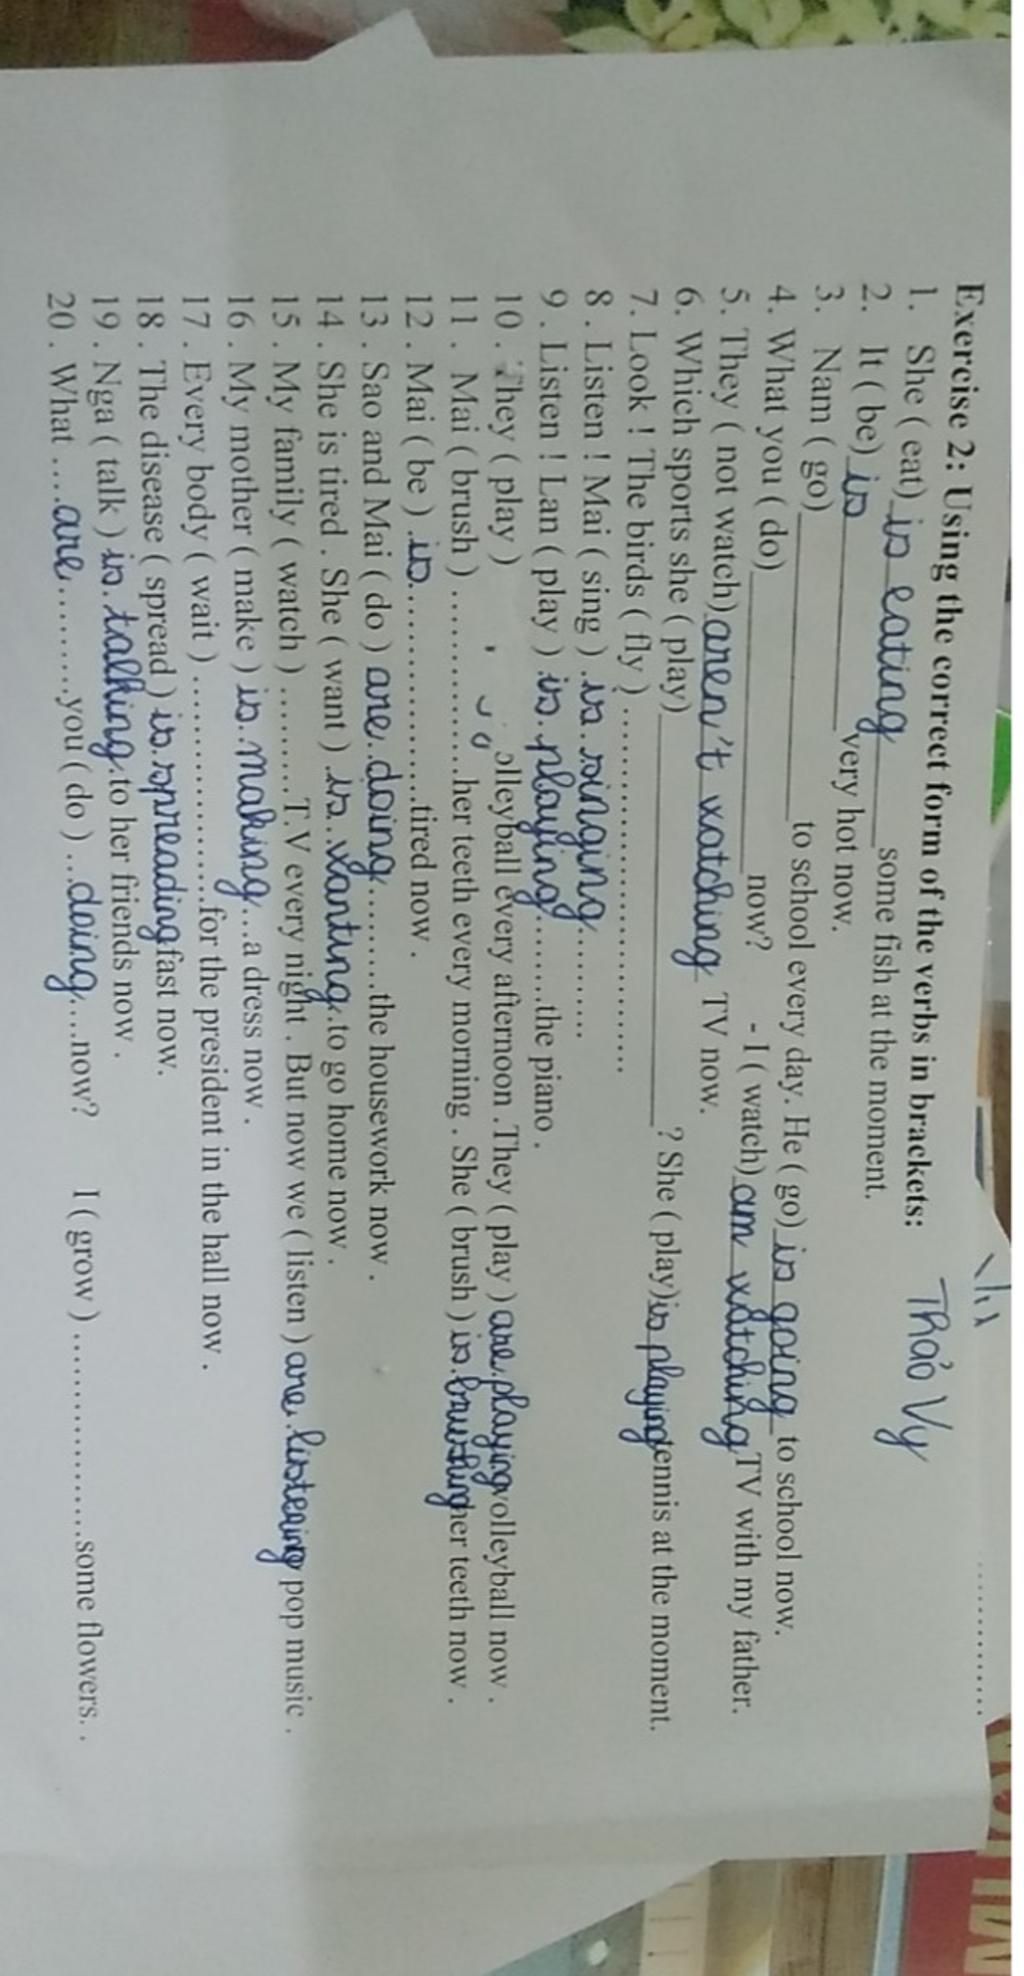 Exercise 2: Using the correct form of the verbs in brackets:
Thảo Vy
1. She ( eat) is eating some fish at the moment.
2. It ( be) is very hot now.
3. Nam ( go)____________ to school every day. He ( go) is going to school now.
4. What you ( do)____________ now? - I ( watch) am watching TV with my father.
5. They ( not watch) aren't watching TV now.
6. Which sports she ( play)____________? She ( play) is playing tennis at the moment.
7. Look ! The birds ( fly )..............................
8 . Listen ! Mai ( sing ) .is singing.........
9 . Listen ! Lan ( play ) .is playing.......the piano .
10 . They ( play ) olleyball every afternoon .They ( play ) are playing volleyball now .
11 . Mai ( brush ) ..................her teeth every morning . She ( brush ) is brushing her teeth now .
12 . Mai ( be ) .is..................tired now .
13 . Sao and Mai ( do ) are doing.........the housework now .
14 . She is tired . She ( want ) .is wanting.to go home now .
15 . My family ( watch ) .........T.V every night . But now we ( listen ) are listening pop music .
16 . My mother ( make ) is making...a dress now .
17 . Every body ( wait ) ....................for the president in the hall now .
18 . The disease ( spread ) is spreading fast now.
19 . Nga ( talk ) is talking.to her friends now .
20 . What ....are..........you ( do ) ...doing....now? I ( grow ) ....................some flowers. .